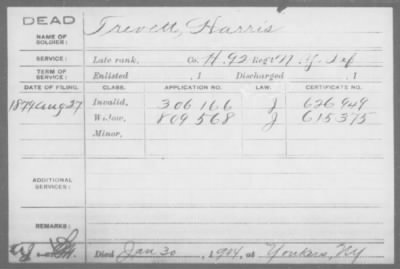 DEAD
NAME OF SOLDIER: Trevett, Harris
SERVICE: Late rank, Co. H. 92 Reg't N.Y. Inf
TERM OF SERVICE: Enlisted , 1 Discharged , 1
DATE OF FILING. CLASS. APPLICATION NO. LAW. CERTIFICATE NO.
1879 Aug 27 Invalid, 306166 J 626949
Widow, 809568 J 615375
Minor,
ADDITIONAL SERVICES:
REMARKS:
Died Jan 30, 1904, at Yonkers, NY